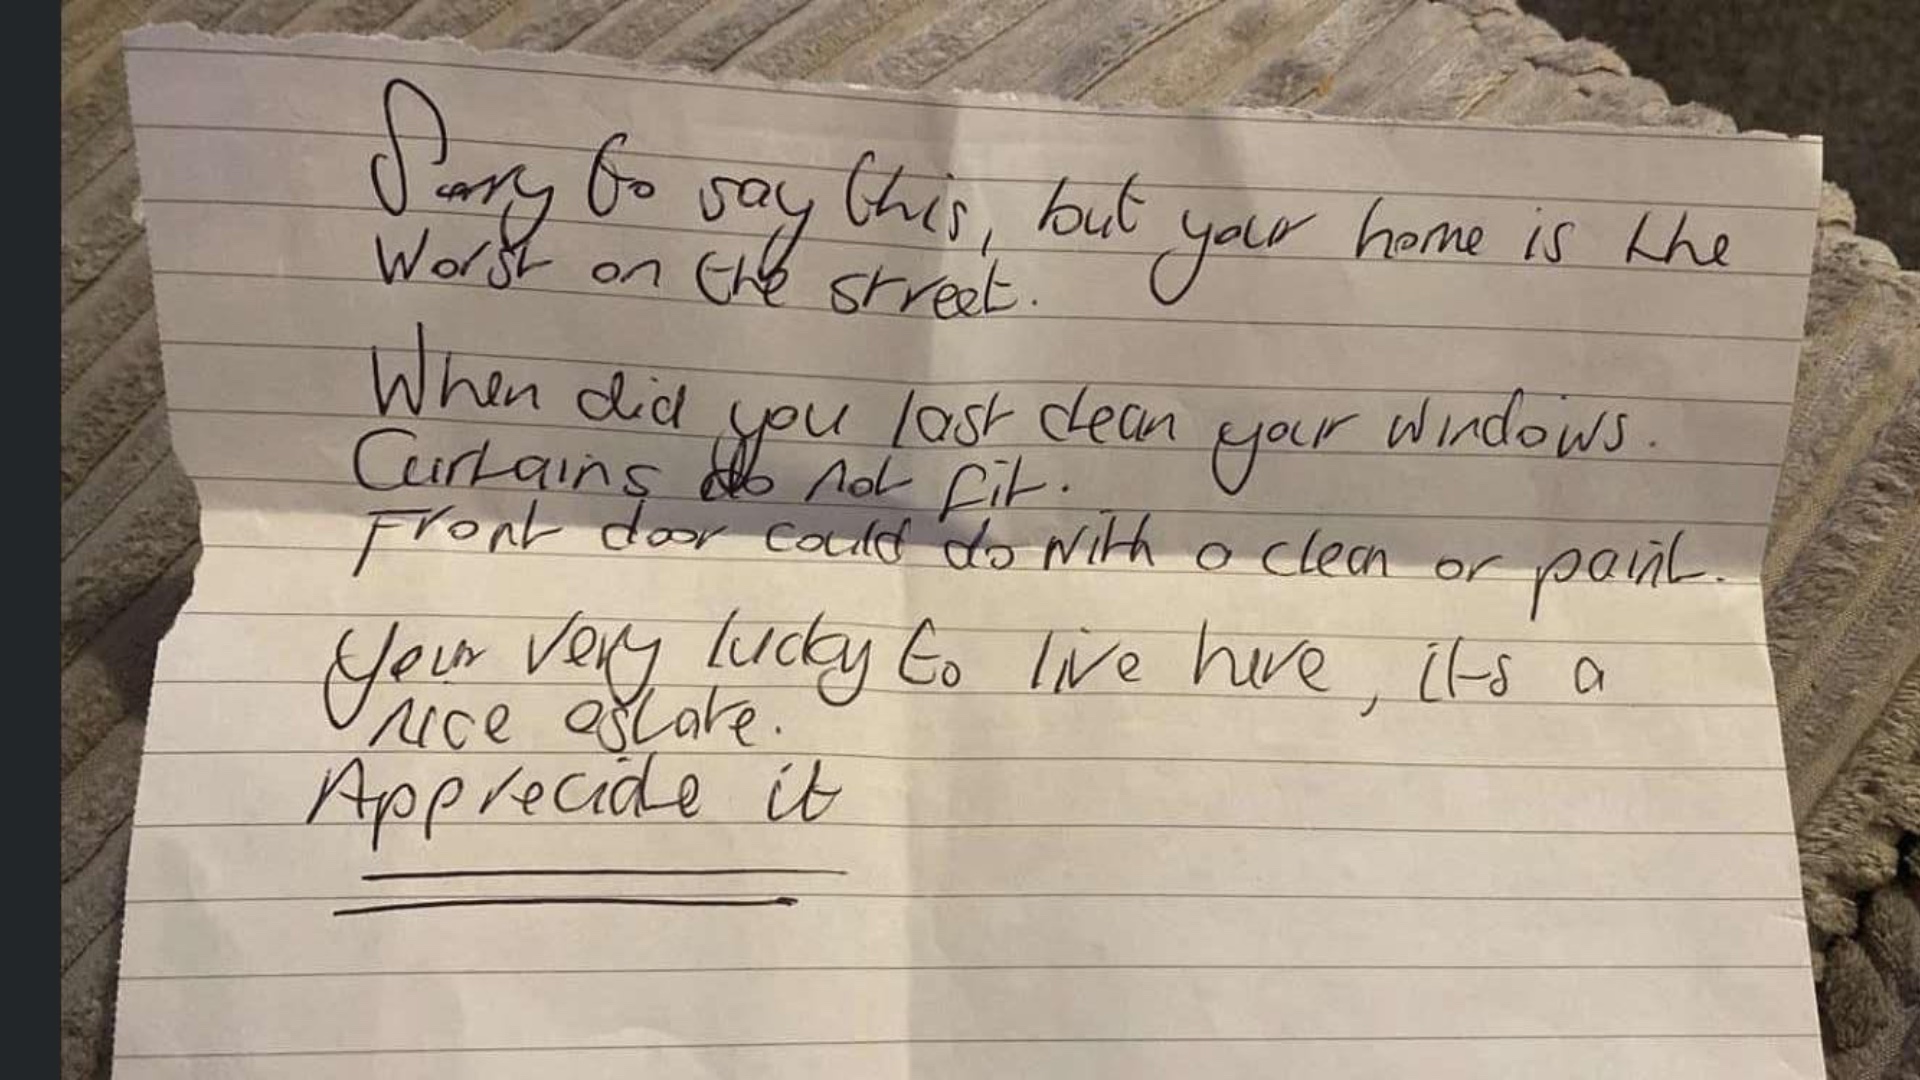 Sorry to say this, but your home is the
Worst on the street.
When did you last clean your windows.
Curtains do not fit.
Front door could do with a clean or paint.
Your very lucky to live here, its a
nice estate.
Appreciate it